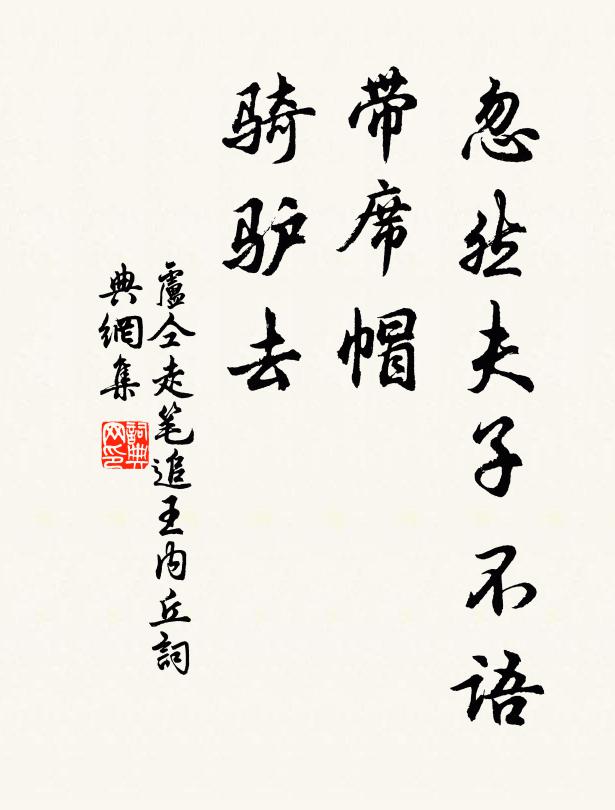 忽然夫子不语
带席帽
骑驴去
盧仝走笔追王内丘詞
典網集
詞典
网印